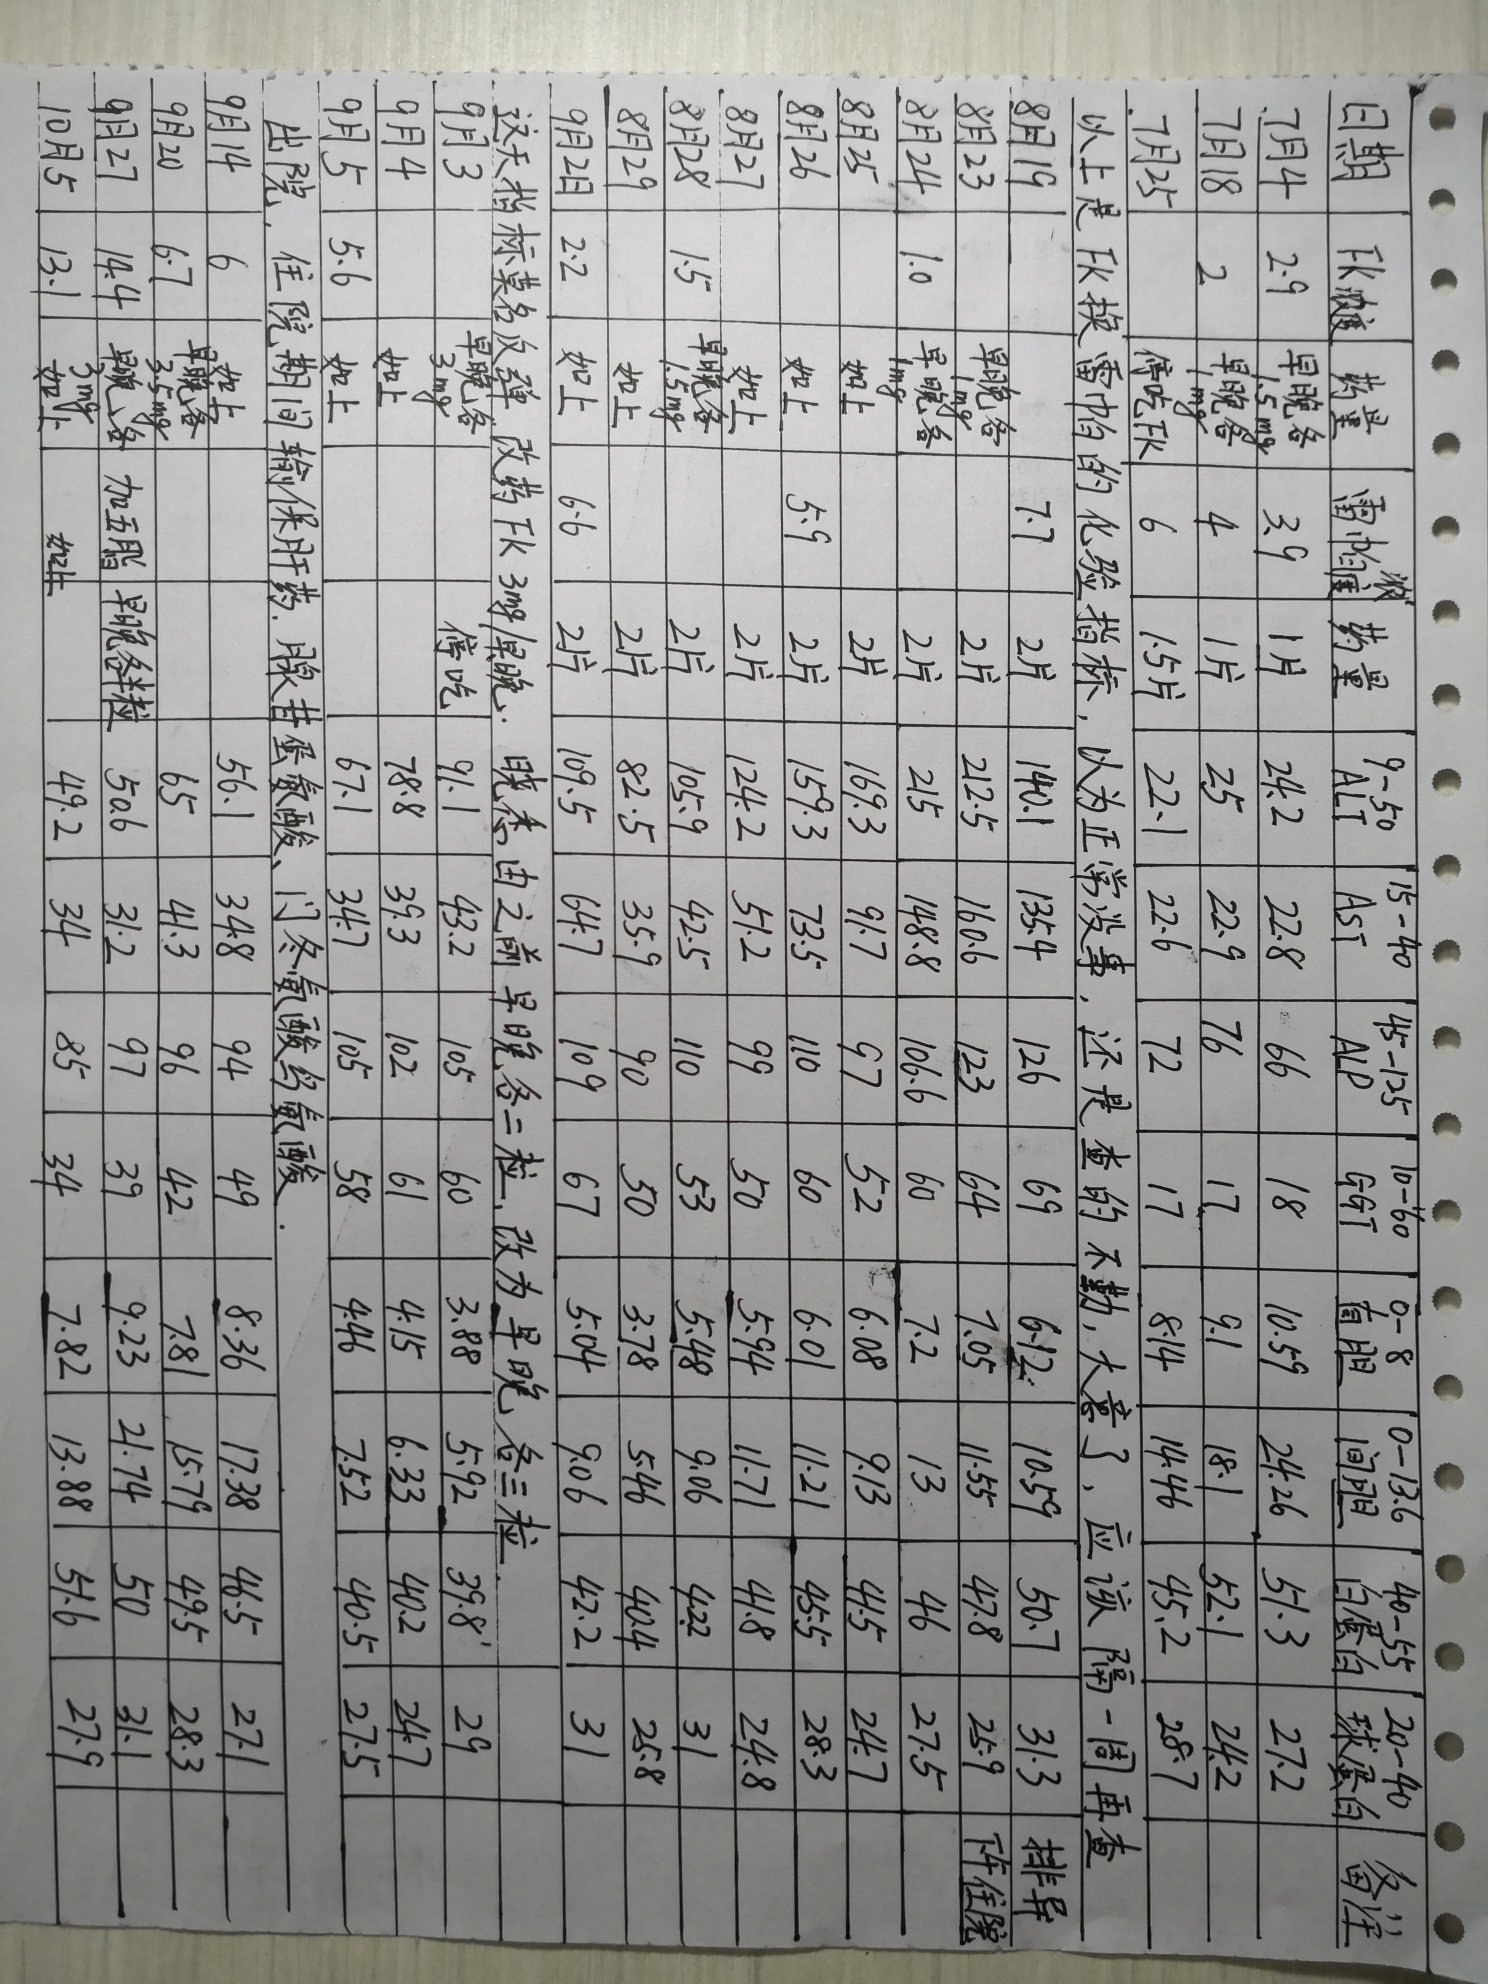 日期 FK浓度 药量 雷帕浓度 药量 9-50 ALT 15-40 AST 45-125 ALP 10-60 GGT 0-8 直胆 0-13.6 间胆 40-55 白蛋白 20-40 球蛋白 备注
7月4 2.9 早晚各1.5mg 3.9 1片 24.2 22.8 66 18 10.59 24.26 51.3 27.2
7月18 2 早晚各1mg 4 1片 25 22.9 76 17 9.1 18.1 52.1 24.2
7月25 停吃FK 6 1.5片 22.1 22.6 72 17 8.14 14.46 45.2 28.7
以上是FK换雷帕的化验指标,以为正常没事,还是查的不勤,大意了,应该隔一周再查
8月19 7.7 2片 140.1 135.4 126 69 6.12 10.59 50.7 31.3 排异
8月23 早晚各1mg 2片 212.5 160.6 123 64 7.05 11.55 47.8 25.9 许住院
8月24 1.0 早晚各1mg 2片 215 148.8 106.6 60 7.2 13 46 27.5
8月25 如上 2片 169.3 91.7 97 52 6.08 9.13 41.5 24.7
8月26 如上 5.9 2片 159.3 73.5 110 60 6.01 11.21 45.5 28.3
8月27 如上 2片 124.2 51.2 99 50 5.94 11.71 41.8 24.8
8月28 1.5 早晚各1.5mg 2片 105.9 42.5 110 53 5.48 9.06 42.2 31
8月29 如上 2片 82.5 35.9 90 50 3.78 5.46 40.4 25.8
9月2日 2.2 如上 6.6 2片 109.5 64.7 109 67 5.04 9.06 42.2 31
这天指标莫名反弹 改药FK 3mg/早晚. 晓悉由之前早晚各二粒,改为早晚各三粒.
9月3 早晚各3mg 停吃 91.1 43.2 105 60 3.88 5.92 39.8 29
9月4 如上 78.8 39.3 102 61 4.15 6.33 40.2 24.7
9月5 5.6 如上 67.1 34.7 105 58 4.46 7.52 40.5 27.5
出院,住院期间输保肝药.腺苷蛋氨酸、门冬氨酸鸟氨酸.
9月14 6 如上 56.1 34.8 94 49 8.36 17.38 46.5 27.1
9月20 6.7 早晚各3.5mg 65 41.3 96 42 7.81 15.79 49.5 28.3
9月27 14.4 早晚各3mg 加五酯 早晚各半粒 50.6 31.2 97 39 9.23 21.74 50 31.1
10月5 13.1 如上 如上 49.2 34 85 34 7.82 13.88 51.6 27.9